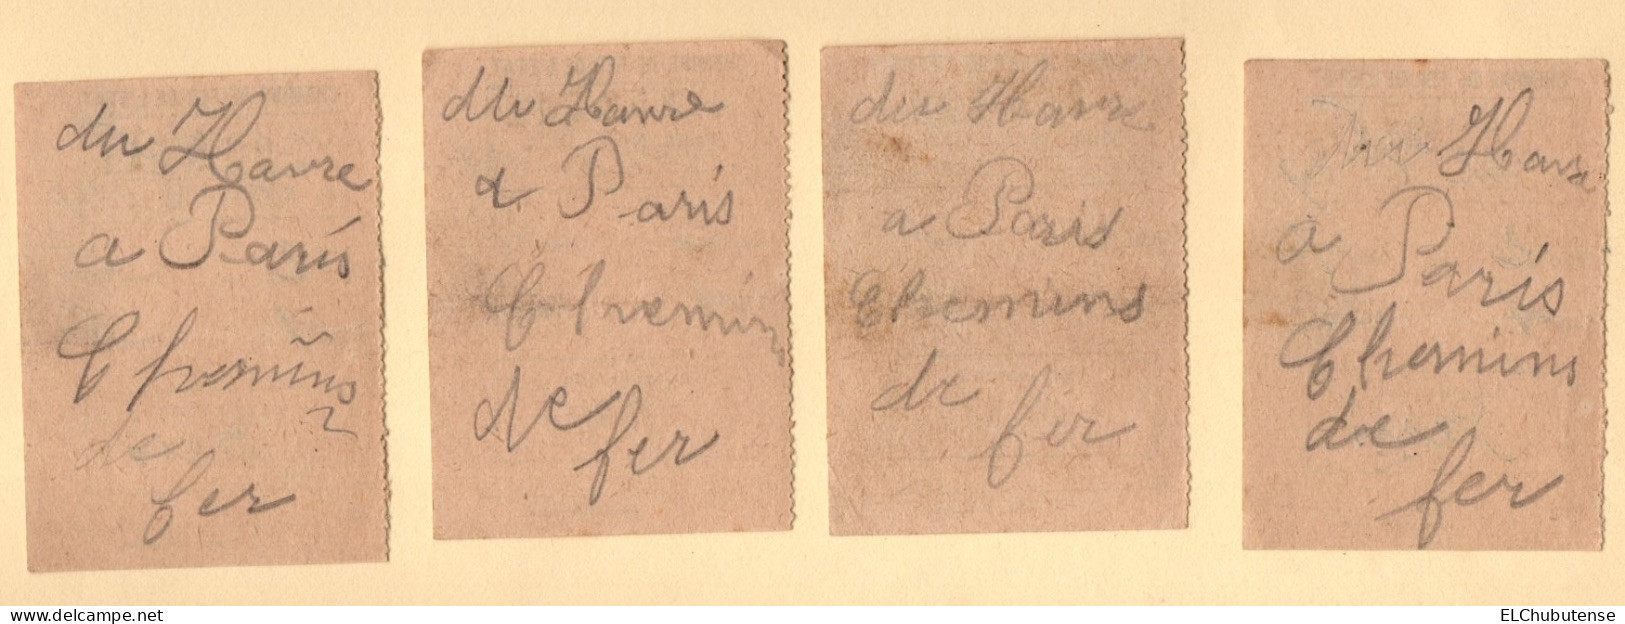 du Havre
a Paris
Chemins
de
fer
du Havre
a Paris
Chemin
de
fer
du Havre
a Paris
Chemins
de
fer
du Havre
a Paris
Chemins
de
fer
www.delcampe.net
ELChubutense